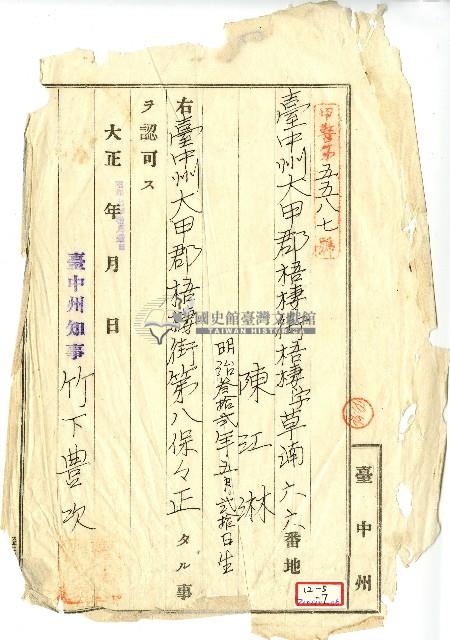 甲警第五五八七號
臺中州大甲郡梧棲街梧棲字草湳六六番地
陳江淋
明治叁拾貳年五月貳拾日生
右臺中州大甲郡梧棲街第八保々正タル事
ヲ認可ス
大正 年 月 日
臺中州知事竹下豊次
臺中州
國史館臺灣文獻館
TAIWAN HISTORICA
12-5
-7